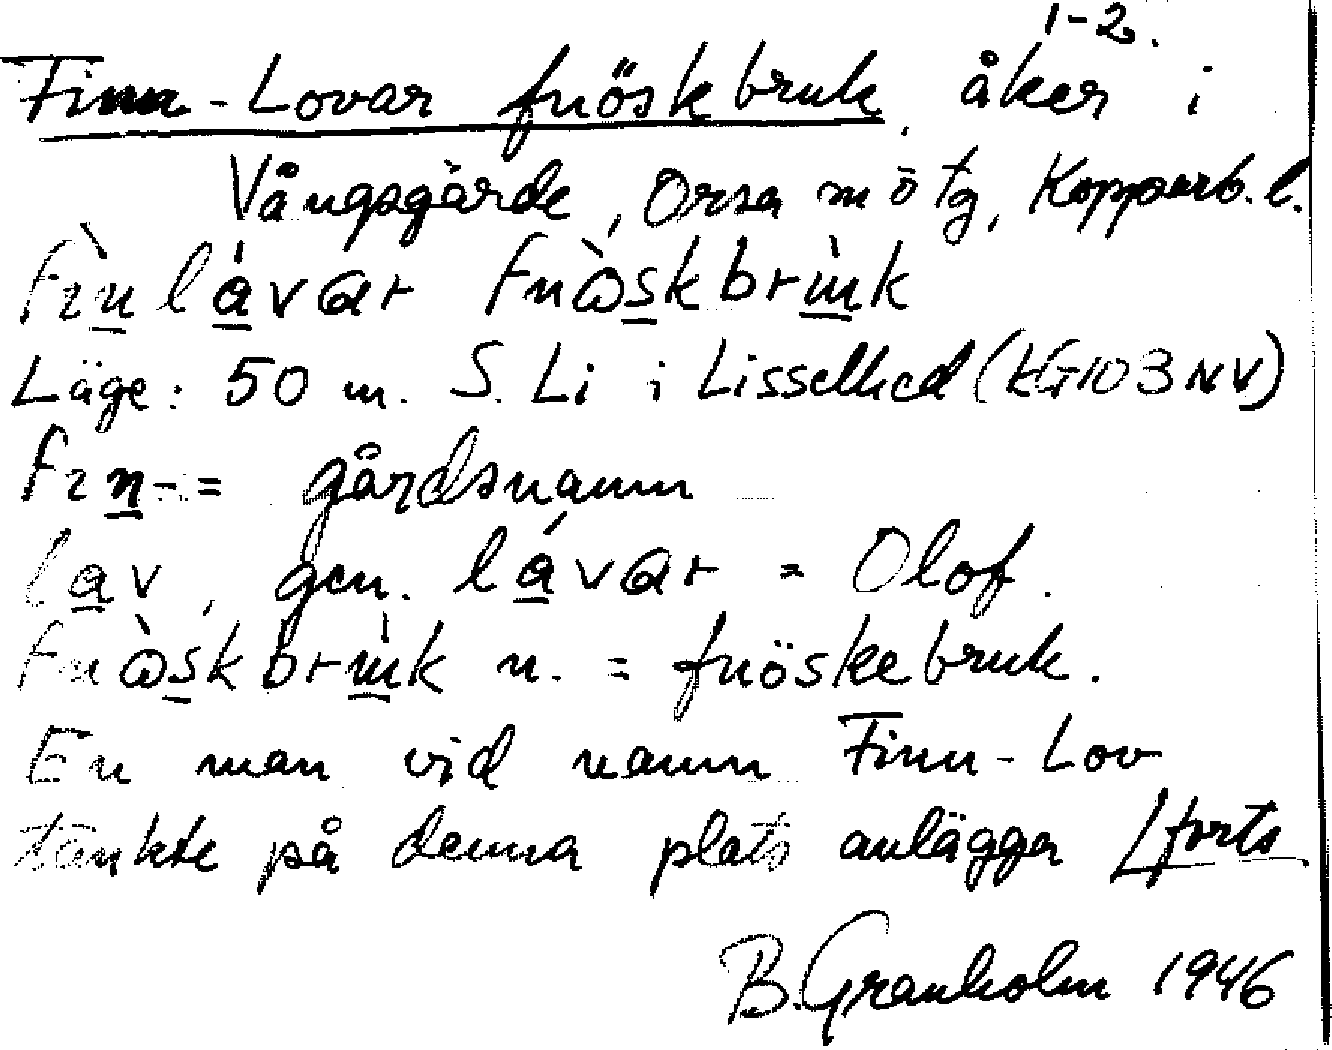 1-2.
Finn-Lovar fnöskbruk, åker i
Vångsgärde, Orsa mötg, Kopparb. l.
Läge: 50 m. S. Li i Lisselhed (KG103NV)
= gårdsnamn
lav, gen. lávar = Olof.
n. = fnöskebruk.
En man vid namn Finn-Lov
tänkte på denna plats anlägga /forts
B. Granholm 1946